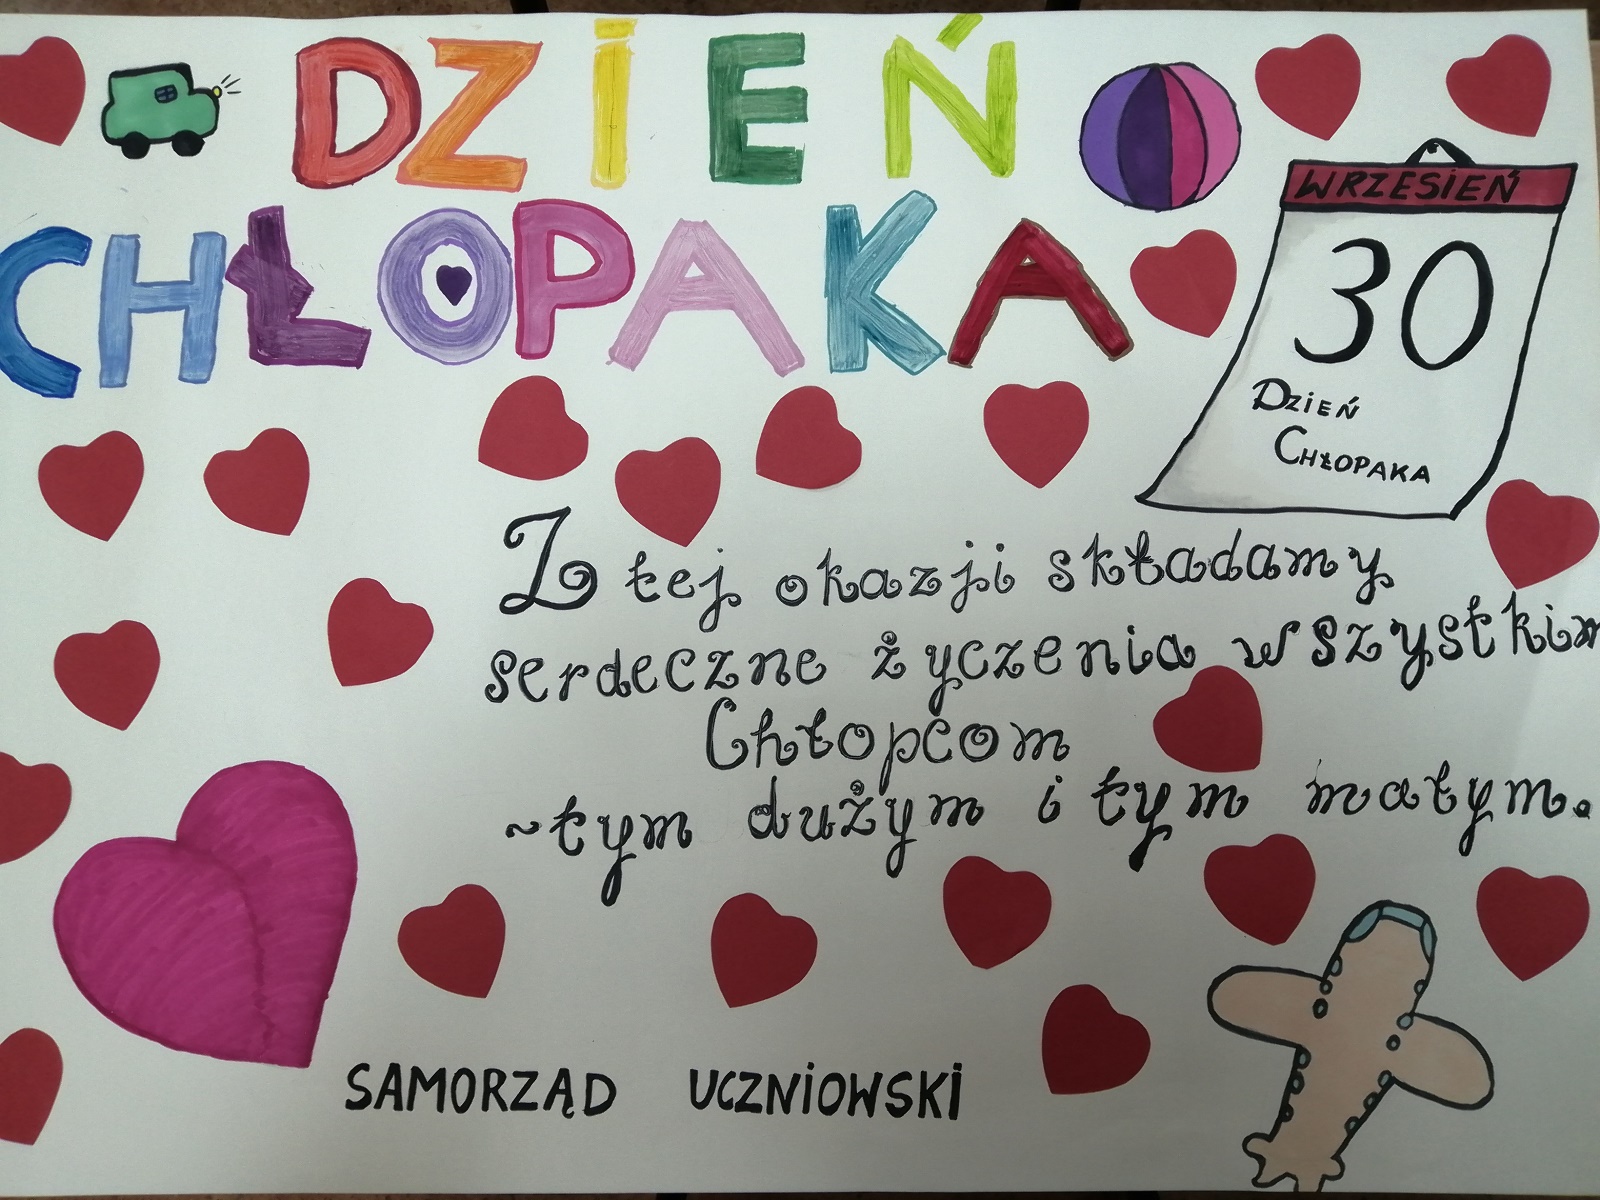 DZIEŃ
CHŁOPAKA
WRZESIEŃ
30
DZIEŃ
CHŁOPAKA
Z tej okazji składamy
serdeczne życzenia wszystkim
Chłopcom
~tym dużym i tym małym.
SAMORZĄD UCZNIOWSKI